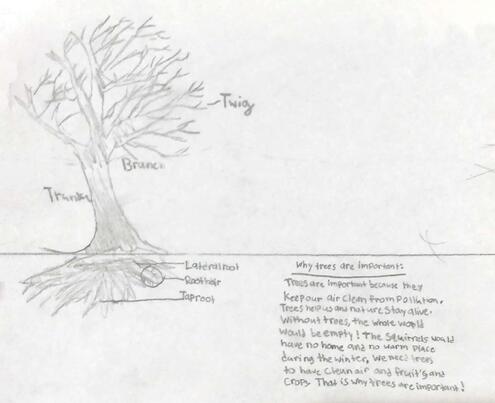 Twig
Branch
Trunk
Lateral root
Root hair
Taproot
Why trees are important:
Trees are important because they
Keep our air Clean from Pollution.
Trees help us and nature Stay alive.
Without trees, the whole world
Would be empty! The Squirrels would
have no home and no warm Place
during the winter, We need trees
to have Clean air and fruits and
Crops. That is why trees are important!